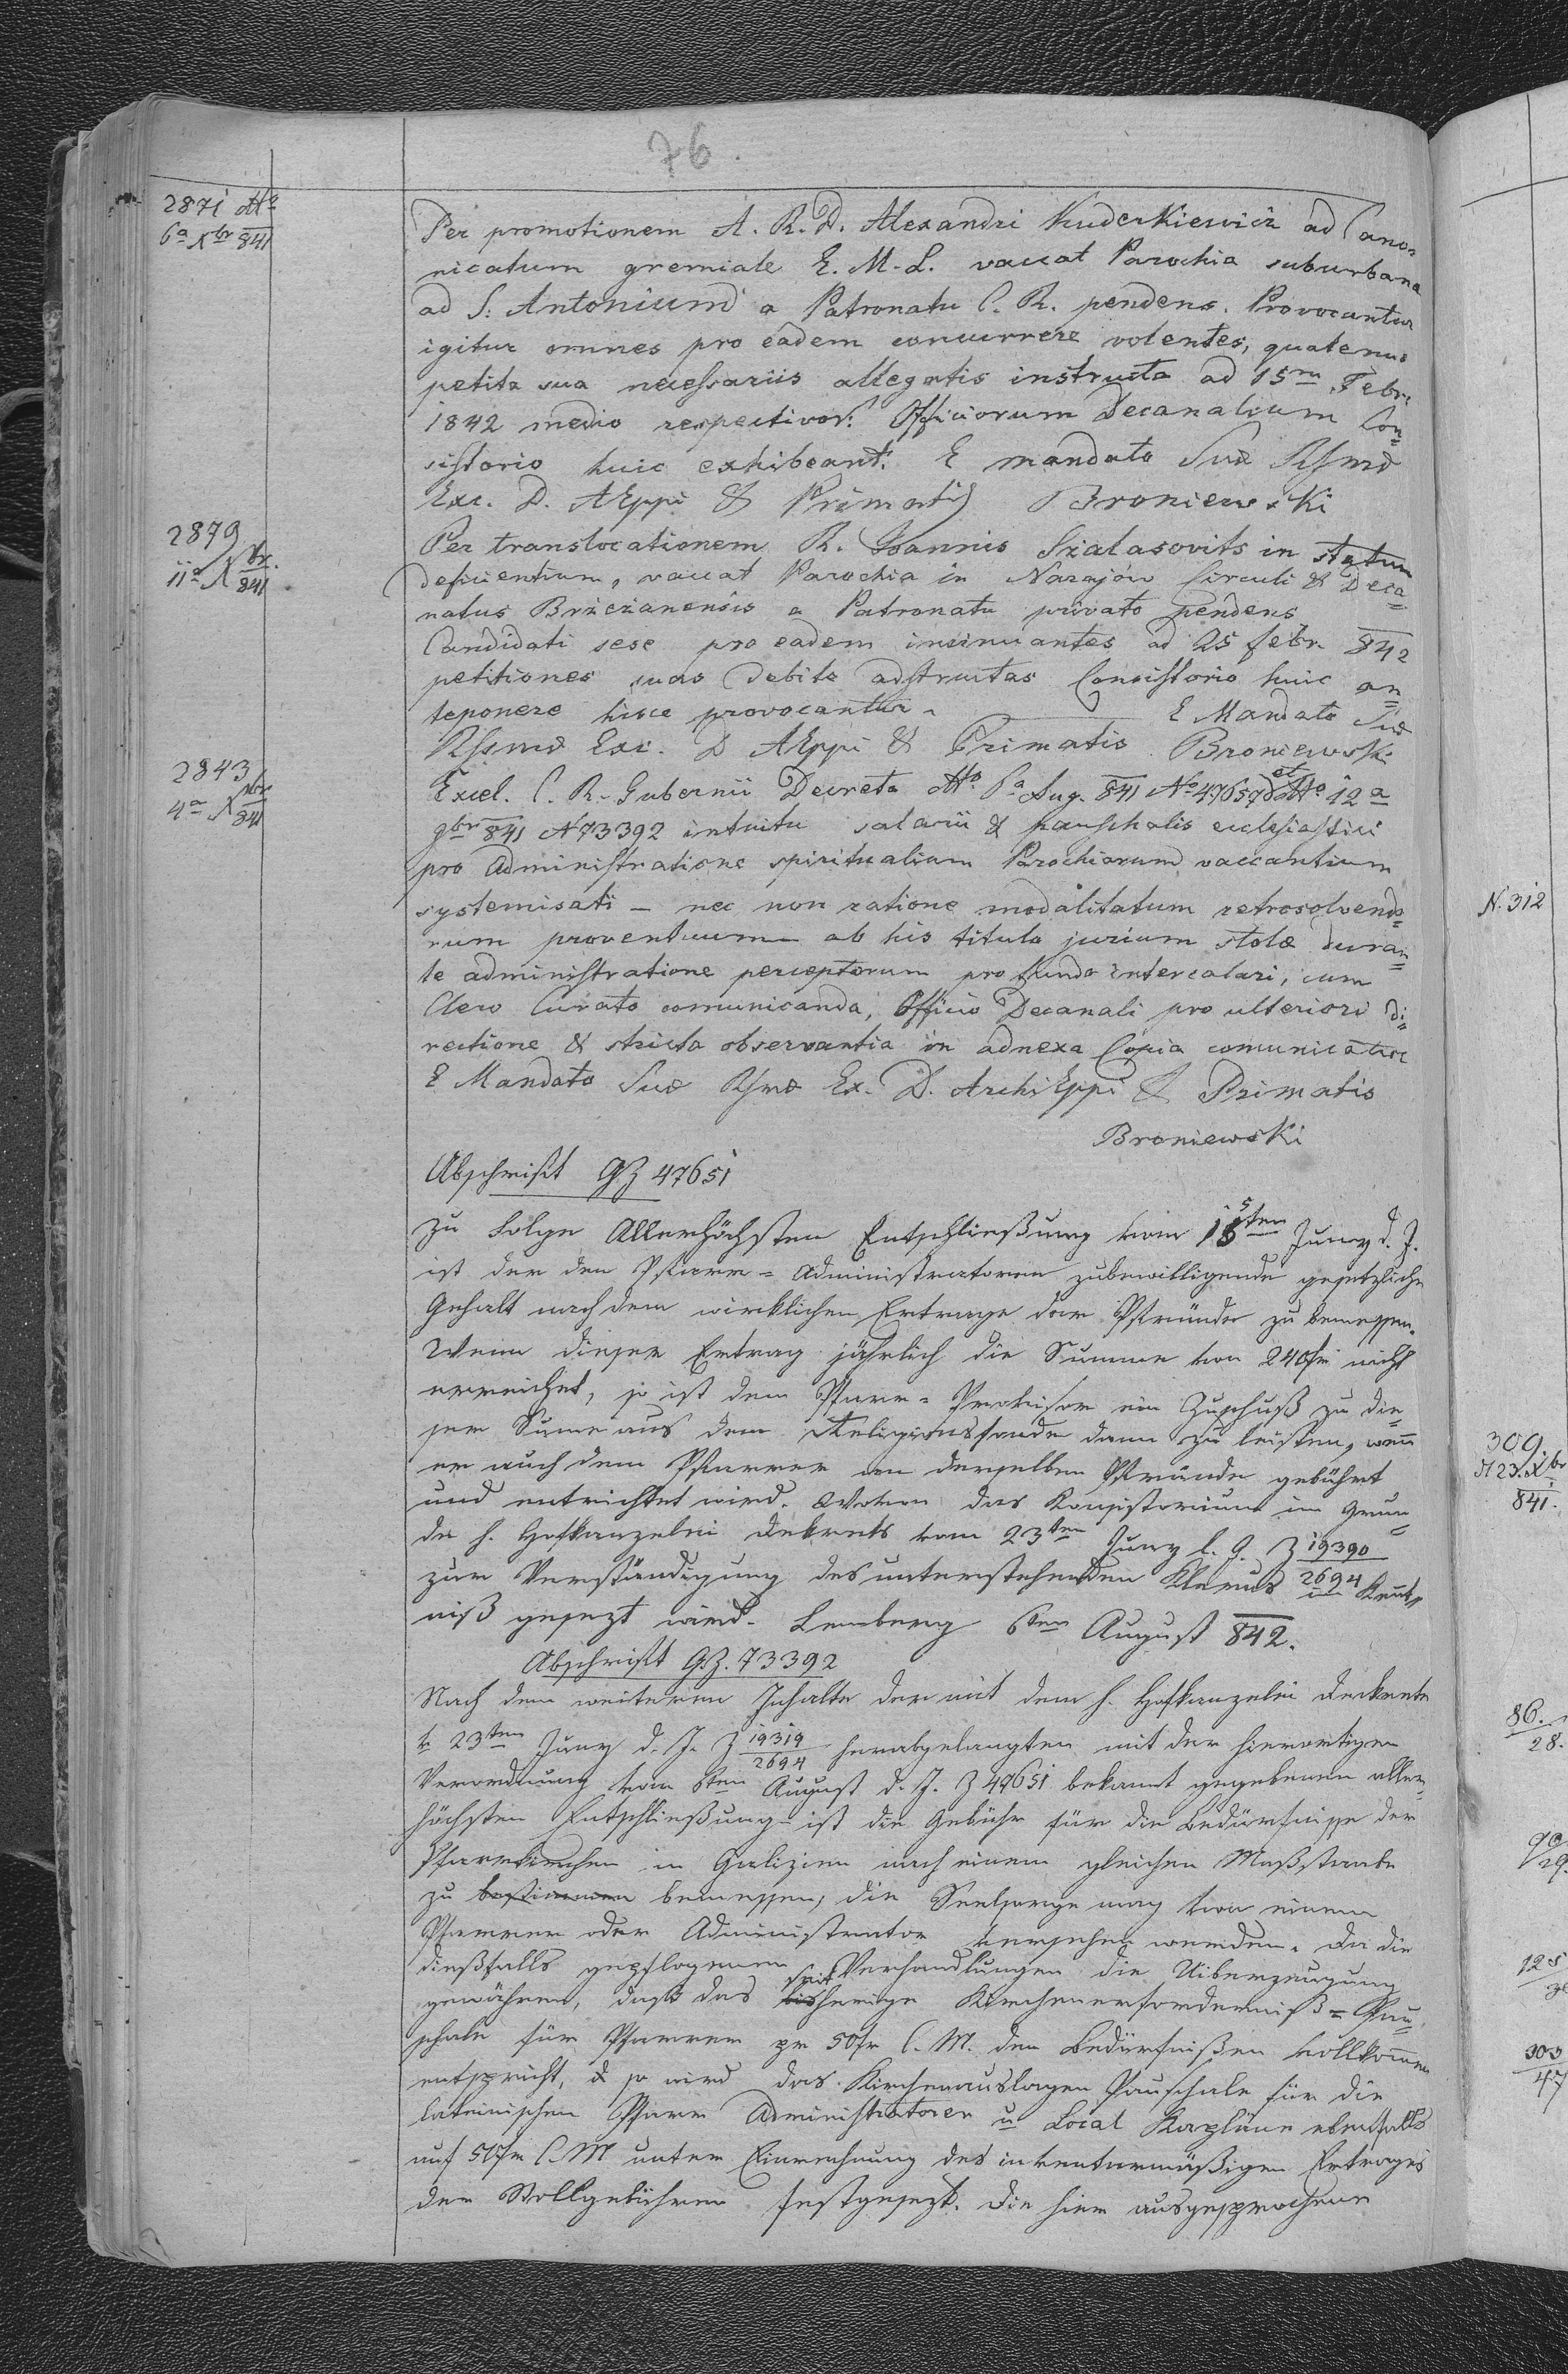 76.
2871 dtto
6a Xbr 841
Per promotionem A. R. D. Alexandri Kuderkiewicz ad Cano=
nicatum gremiale E. M. L. vaccat Parochia suburbana
ad S: Antonium a Patronatu C. R. pendens. Provocantur
igitur omnes pro eadem concurrere volentes, quatenus
petita sua necessariis allegatis instructa ad 15m Febr:
1842 medio respectivor: Officiorum Decanalium Con=
sistorio huic exhibeant. E mandato Suæ Rssmæ
Exc. D. AEppi & Primatis Broniewski
2879
11a Xbr. 841
Per translocationem R. Joannis Szalasovits in statum
deficientium, vaccat Parochia in Narajów Circuli & Deca=
natus Brzezanensis a Patronatu privato pendens
Candidati sese pro eadem insinuantes ad 25 febr. 842
petitiones suas debite adstructas Consistorio huic an=
teponere hisce provocantur. E Mandato Suæ
Rssmæ Exc. D AEppi & Primatis Broniewski
2843
4a Xbr 841
Excel. C. R. Gubernii Decreta dtto 6a Aug. 841 No 47651 et dtto 12a
9br 841 N 73392 intuitu salarii & pauschalis ecclesiastici
pro administratione spiritualium Parochiarum vaccantium
systemisati – nec non ratione modalitatum retrosolvendo=
rum proventuum ab his titulo jurium stolæ duran=
te administratione perceptorum pro fundo intercalari, cum
Clero Curato comunicanda, Officio Decanali pro ulteriori di=
rectione & stricta observantia in adnexa Copia comunicatur
E Mandato Suæ Rsmæ Ex. D. ArchiEppi & Primatis
Broniewski
Abschrift GZ 47651
Zu Folge Allerhöchsten Entschließung vom 15ten Juny d. J.
ist der den Pfarr=Administratoren zubewilligende gesetzliche
Gehalt nach dem wirklichen Ertrage der Pfründe zu bemessen.
Wenn dieser Ertrag jährlich die Summe von 240fr nicht
erreichet, so ist dem Pfarr=Provisor ein Zuschuß zu die=
ser Sume aus dem Religionsfonde dann zu leisten, wenn
er auch dem Pfarrer an derselben Pfründe gebührt
und entrichtet wird. Wovon das Konsistorium im Grun=
de h. Hofkanzelei Dekrets vom 23ten Juny l. J. Z 19390/2694
zur Verständigung des unterstehenden Klerus in Kennt=
niß gesezt wird. Lemberg 6ten August 842.
Abschrift G.Z. 73392
Nach dem weiteren Inhalte der mit dem h. Hofkanzelei Dekrete
v 23ten Juny d. J. Z 19319/2694 herabgelangten mit der hierortigen
Verordnung vom 6ten August d. J. Z 47651 bekannt gegebenen aller=
höchsten Entschließung ist die Gebühr für die Bedürfnisse der
Pfarrkirchen in Galizien nach einem gleichen Maßstabe
zu bestimmen bemessen, die Seelsorge mag von einem
Pfarrer oder Administrator versehen werden. Da die
dießfalls gepflogenen Verhandlungen die Uiberzeugung
gewähren, daß das bis seitherige Kirchenerforderniß=Pau=
schale für Pfarrer pr 50fr C. M. den Bedürfnißen vollkommen
entspricht, & so wird das Kirchenauslagen Pauschale für die
lateinischen Pfarr Administratoren u Local Kapläne ebenfalls
auf 50fr C.M unter Einrechnung des inventarmäßigen Ertrages
der Stollgebühren festgesezt. Die hier ausgesprochene
N. 312
309.
d 23. Xbr
841.
86.
28.